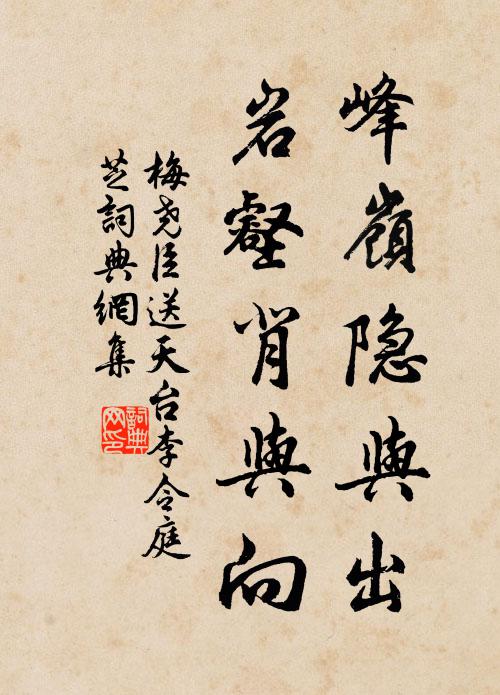 峰嶺隐與出
岩壑背與向
梅尧臣送天台李令庭
芝詞典網集
詞典网印